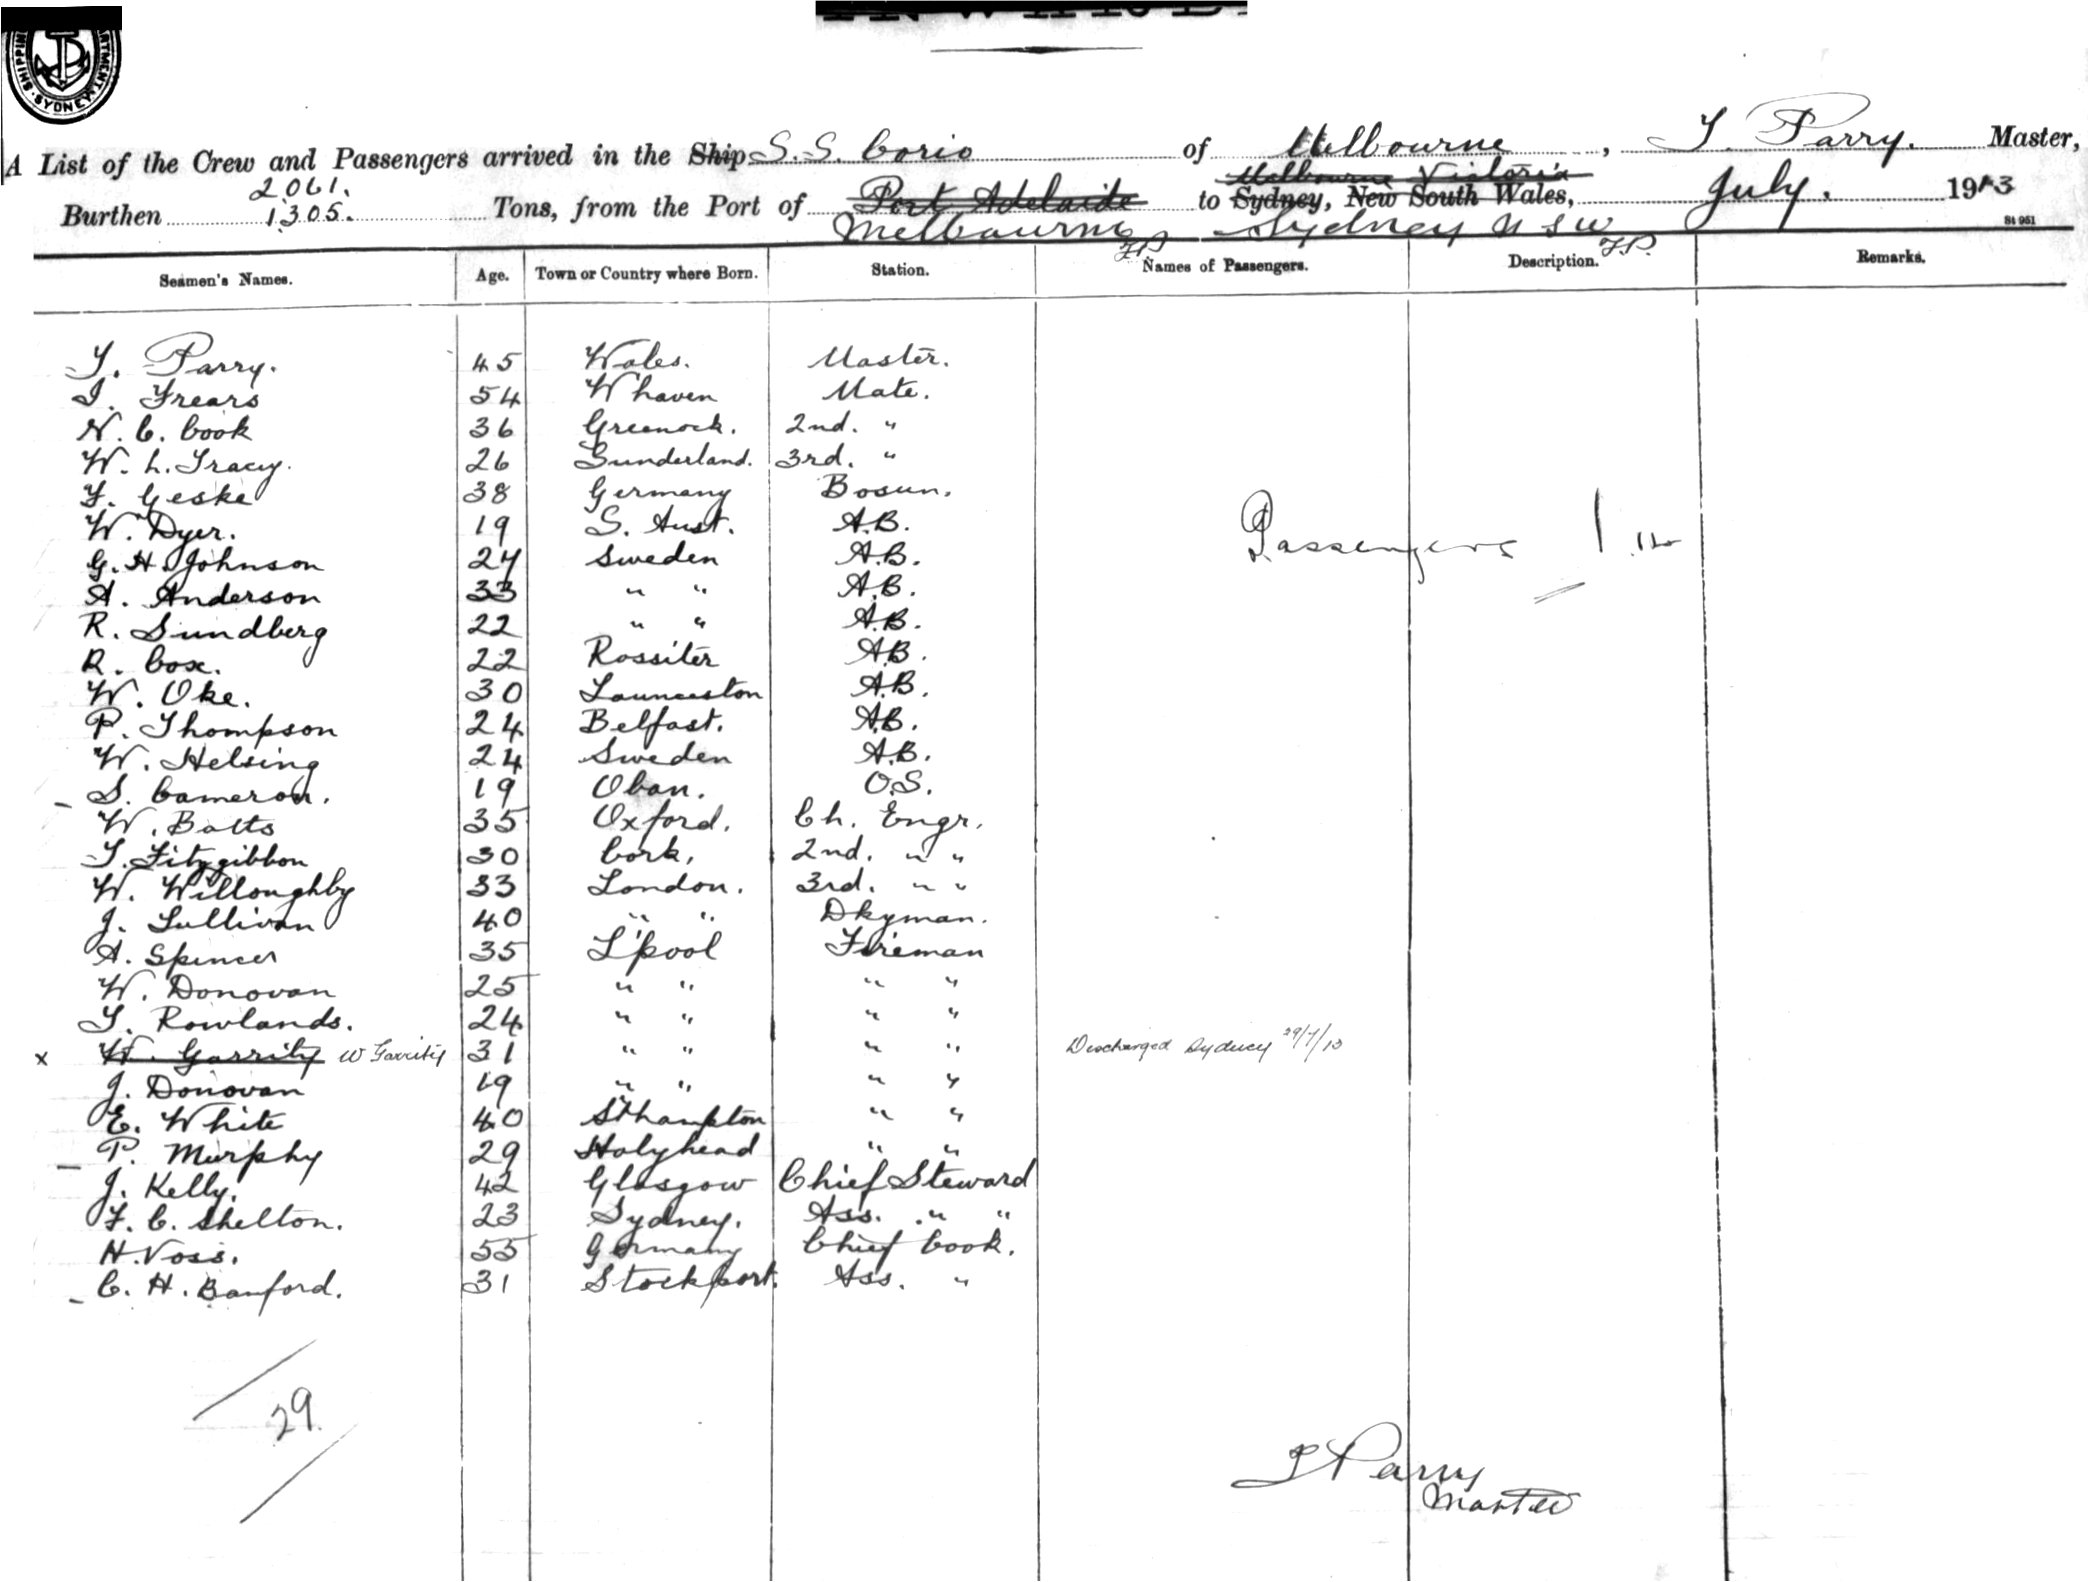 SHIPPING DEPARTMENT SYDNEY
A List of the Crew and Passengers arrived in the Ship S.S. Corio of Melbourne, T. Parry. Master,
2061.
Melbourne Victoria
Burthen 1305. Tons, from the Port of Port Adelaide to Sydney, New South Wales, July. 1913
Melbourne Sydney N S W
T.P. T.P.
St 951
Seamen's Names. Age. Town or Country where Born. Station. Names of Passengers. Description. Remarks.
T. Parry. 45 Wales. Master.
I. Frears 54 W'haven Mate.
N. C. Cook 36 Greenock. 2nd. "
W. L. Tracy. 26 Sunderland. 3rd. "
F. Geske 38 Germany Bosun.
W. Dyer. 19 S. Aust. A.B.
G. H. Johnson 24 Sweden A.B.
A. Anderson 33 " " A.B.
R. Sundberg 22 " " A.B.
R. Cox. 22 Rossiter A.B.
W. Oke. 30 Launceston A.B.
P. Thompson 24 Belfast. A.B.
W. Helsing 24 Sweden A.B.
S. Cameron. 19 Oban. O.S.
W. Batts 35 Oxford. Ch. Engr.
T. Fitzgibbon 30 Cork, 2nd. " "
W. Willoughby 33 London. 3rd. " "
J. Sullivan 40 " " Dkyman.
A. Spencer 35 L'pool Fireman
W. Donovan 25 " " " "
T. Rowlands. 24 " " " "
x W. Garrity W Garrity 31 " " " " Discharged Sydney 29/7/13
J. Donovan 19 " " " "
E. White 40 S'thampton " "
P. Murphy 29 Holyhead " "
J. Kelly. 42 Glasgow Chief Steward
F. C. Shelton. 23 Sydney. Ass. " "
H. Voss. 55 Germany Chief Cook.
C. H. Banford. 31 Stockport. Ass. "
Passengers
29
T Parry
Master